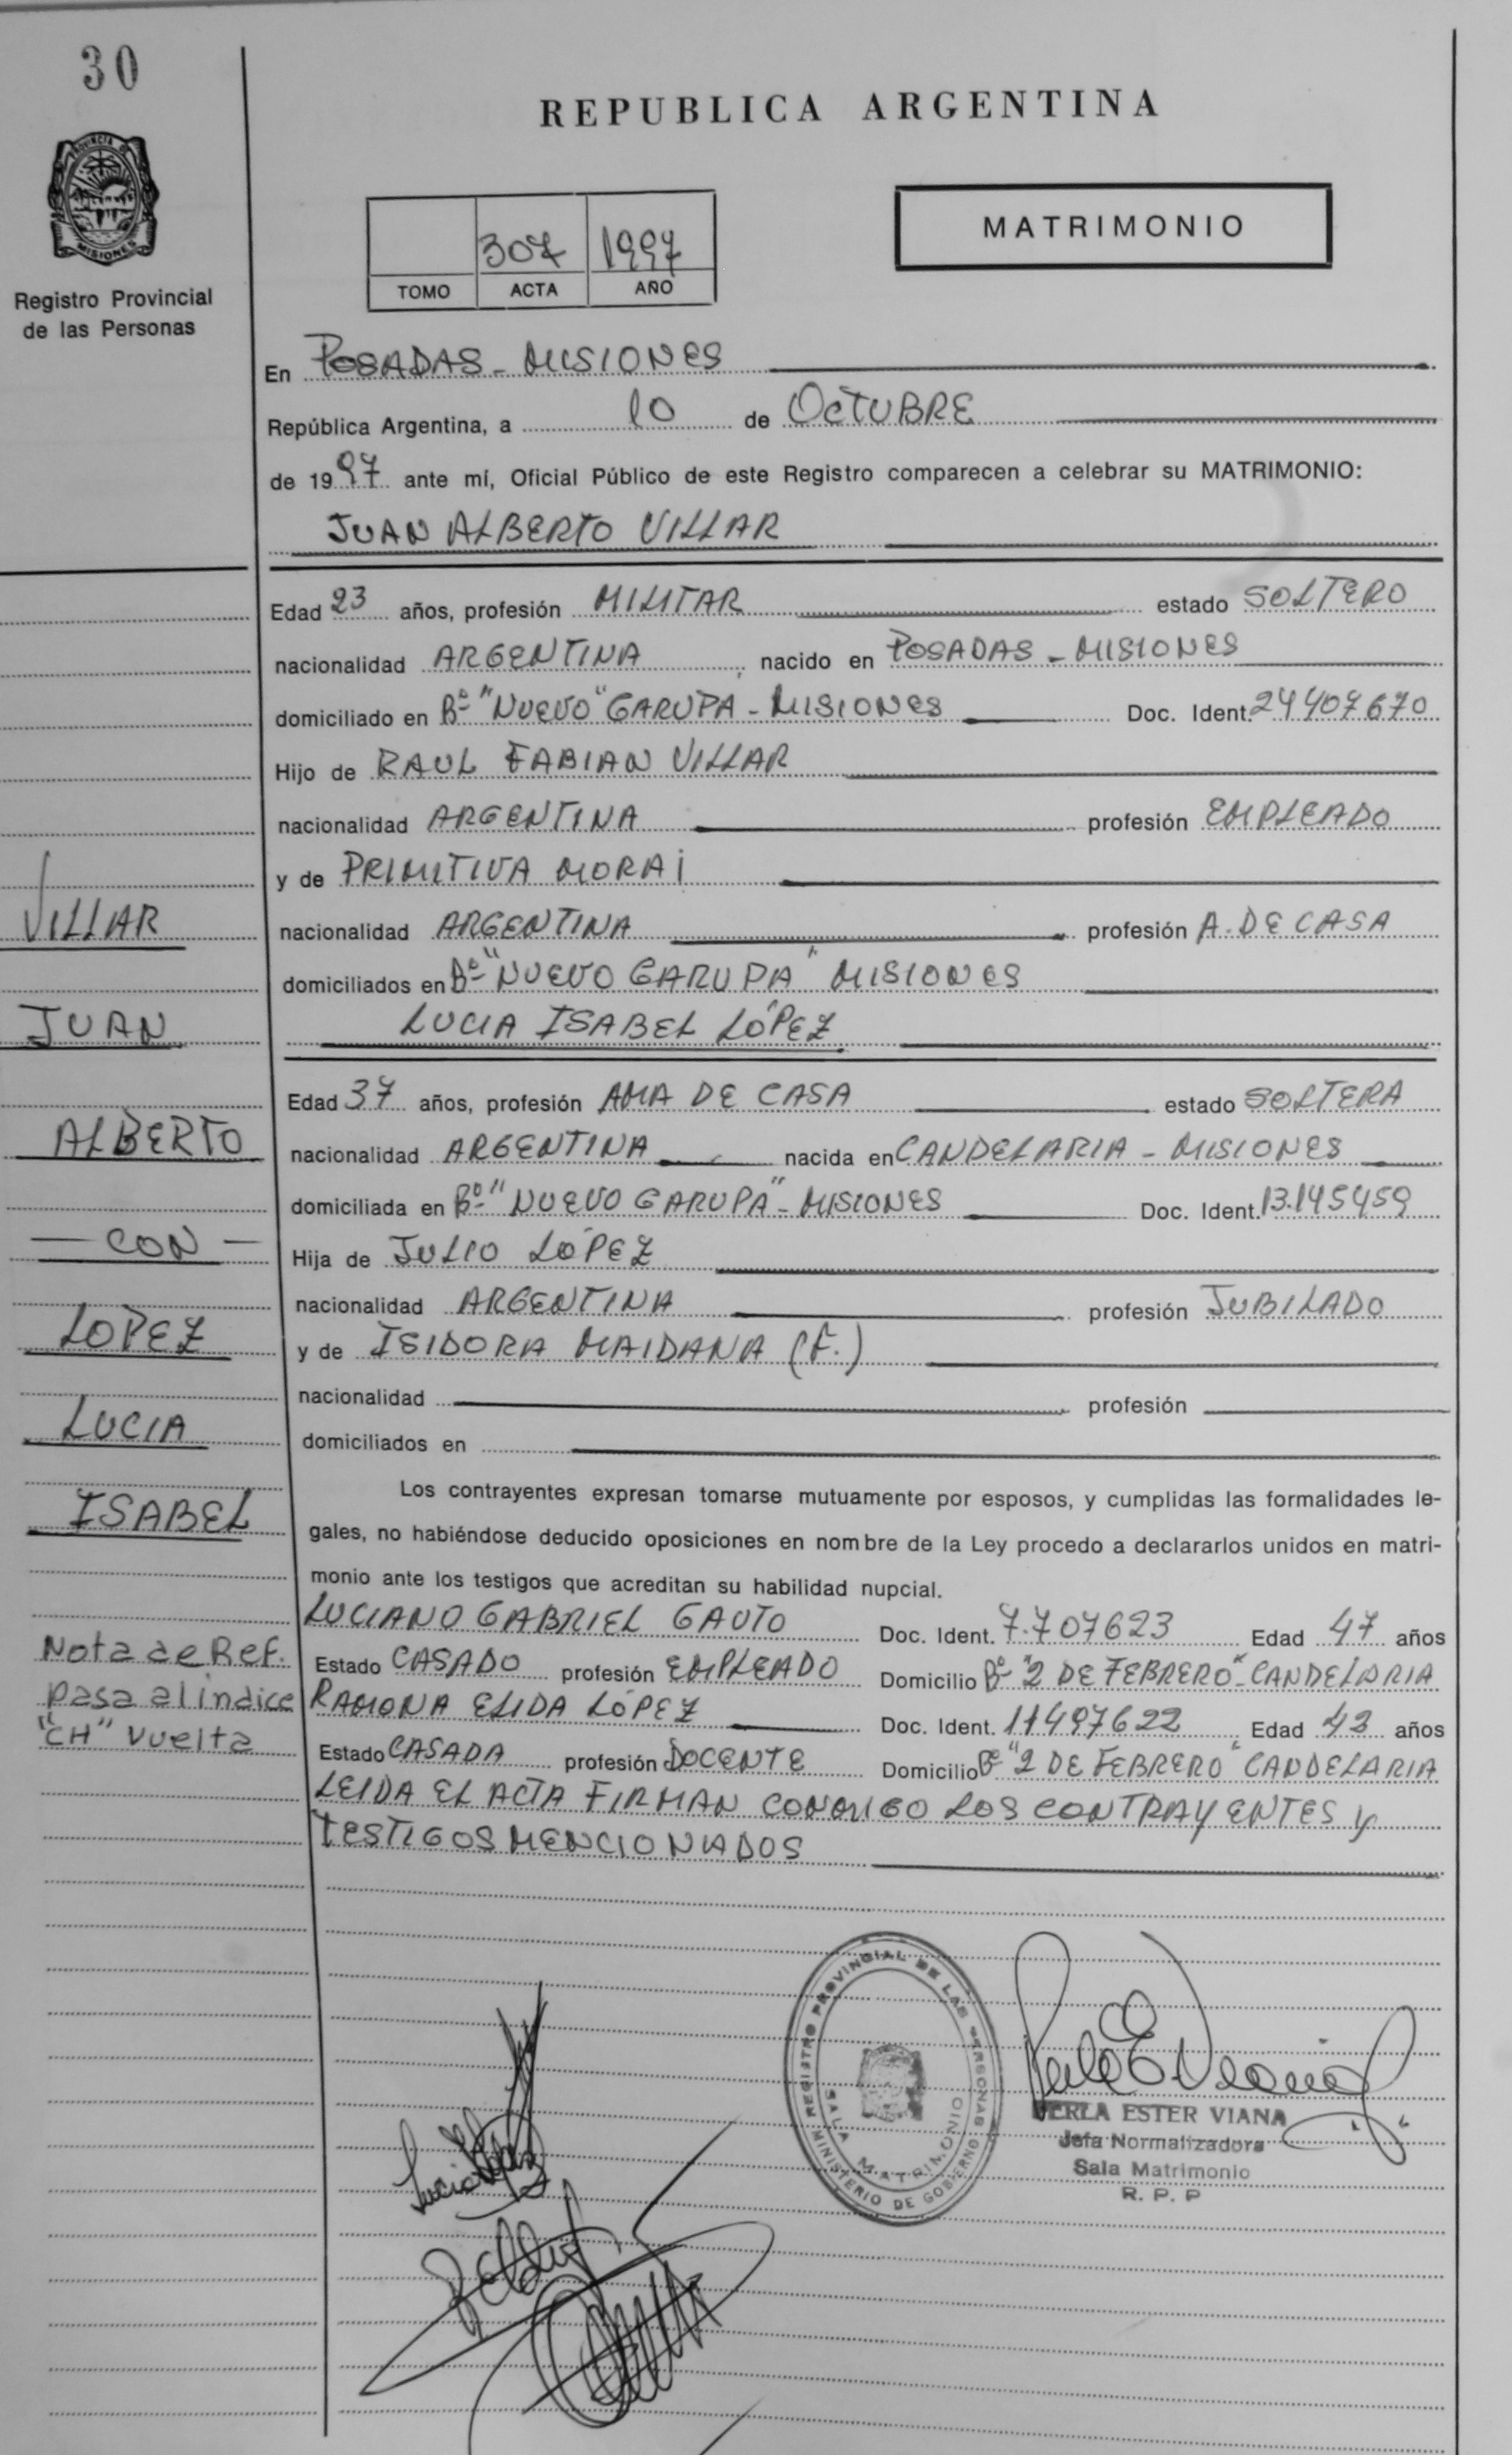 30
REPUBLICA ARGENTINA
PROVINCIA DE
MISIONES
MATRIMONIO
307 1997
TOMO ACTA AÑO
Registro Provincial
de las Personas
En POSADAS - MISIONES
República Argentina, a 10 de OCTUBRE
de 1997 ante mí, Oficial Público de este Registro comparecen a celebrar su MATRIMONIO:
JUAN ALBERTO VILLAR
Edad 23 años, profesión MILITAR estado SOLTERO
nacionalidad ARGENTINA, nacido en POSADAS - MISIONES
domiciliado en Bº "NUEVO" GARUPA - MISIONES Doc. Ident. 24407670
Hijo de RAUL FABIAN VILLAR
nacionalidad ARGENTINA profesión EMPLEADO
y de PRIMITIVA MORAI
nacionalidad ARGENTINA profesión A. DE CASA
domiciliados en Bº "NUEVO GARUPA" MISIONES
LUCIA ISABEL LÓPEZ
Edad 37 años, profesión AMA DE CASA estado SOLTERA
nacionalidad ARGENTINA nacida en CANDELARIA - MISIONES
domiciliada en Bº "NUEVO GARUPA" - MISIONES Doc. Ident. 13.145459
Hija de JULIO LÓPEZ
nacionalidad ARGENTINA profesión JUBILADO
y de ISIDORA MAIDANA (F.)
nacionalidad profesión
domiciliados en
Los contrayentes expresan tomarse mutuamente por esposos, y cumplidas las formalidades le-
gales, no habiéndose deducido oposiciones en nombre de la Ley procedo a declararlos unidos en matri-
monio ante los testigos que acreditan su habilidad nupcial.
LUCIANO GABRIEL GAUTO Doc. Ident. 7.707623 Edad 47 años
Estado CASADO profesión EMPLEADO Domicilio Bº "2 DE FEBRERO" - CANDELARIA
RAMONA ELIDA LÓPEZ Doc. Ident. 11497622 Edad 42 años
Estado CASADA profesión DOCENTE Domicilio Bº "2 DE FEBRERO" CANDELARIA
LEIDA EL ACTA FIRMAN CONMIGO LOS CONTRAYENTES y
TESTIGOS MENCIONADOS
VILLAR
JUAN
ALBERTO
- CON -
LOPEZ
LUCIA
ISABEL
Nota de Ref.
pasa al índice
"CH" vuelta
REGISTRO PROVINCIAL DE LAS PERSONAS
SALA MATRIMONIO
MINISTERIO DE GOBIERNO
PERLA ESTER VIANA
Jefa Normalizadora
Sala Matrimonio
R. P. P